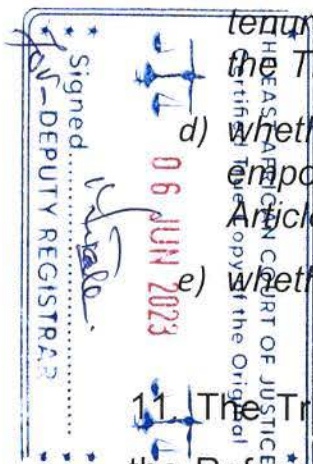 tenur
the T
d) wheth
empo
Article
e) wheth
11. The Tr
THE EAST AFRICAN COURT OF JUSTICE
Certified True Copy of the Original
06 JUN 2023
Signed
DEPUTY REGISTRAR